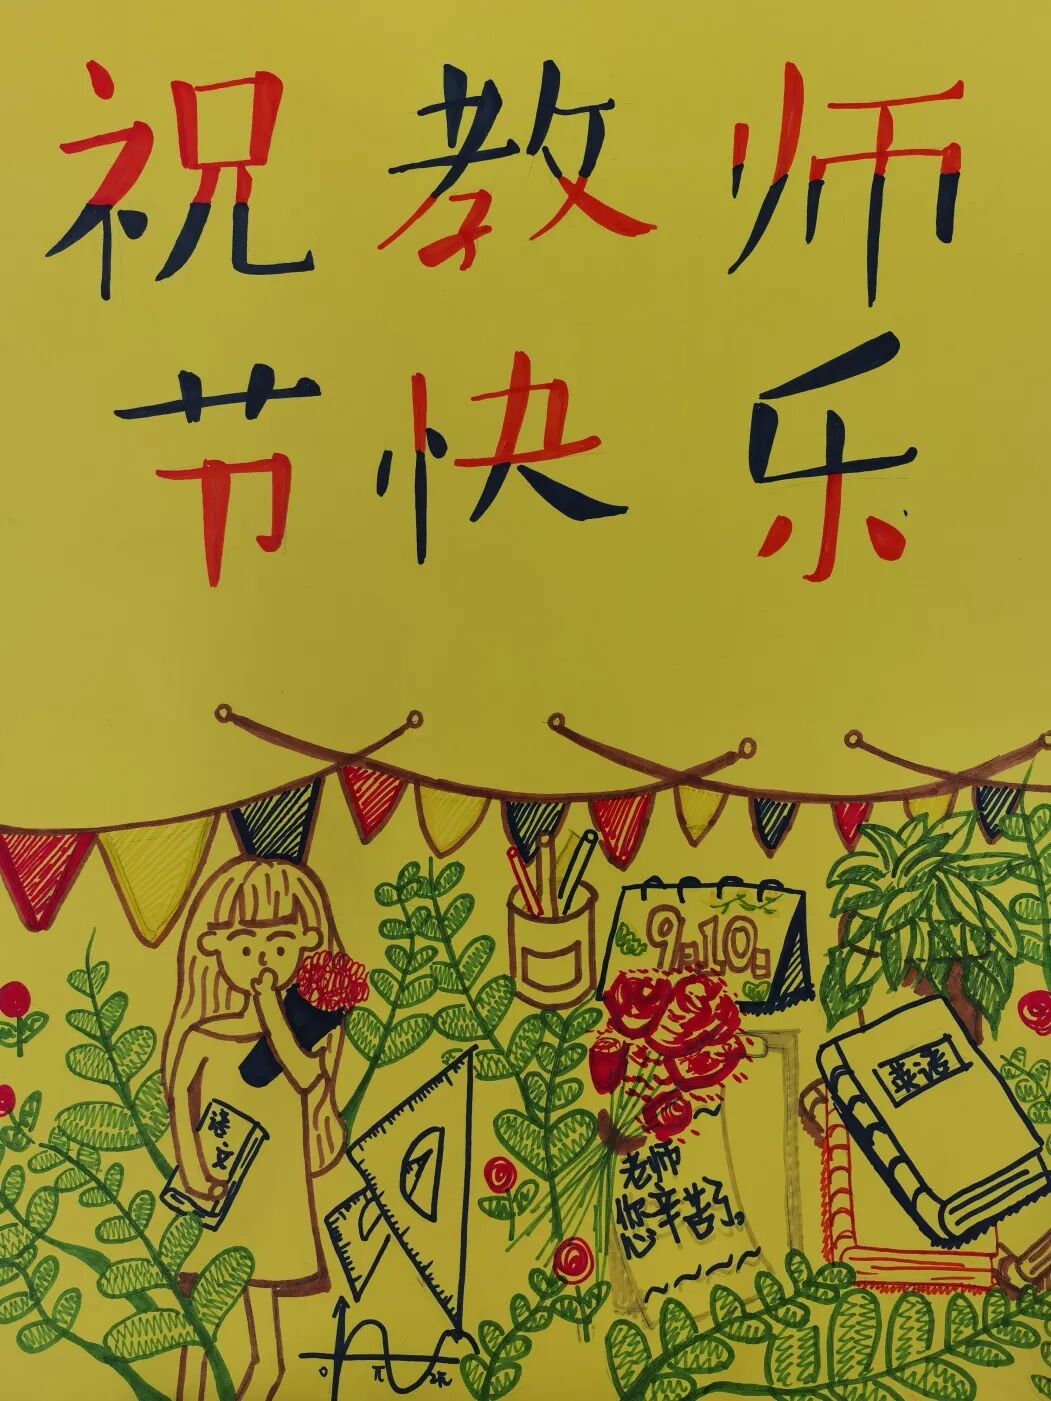 祝教师
节快乐
9.10.
英语
语文
老师
您辛苦了,
0 π 2π